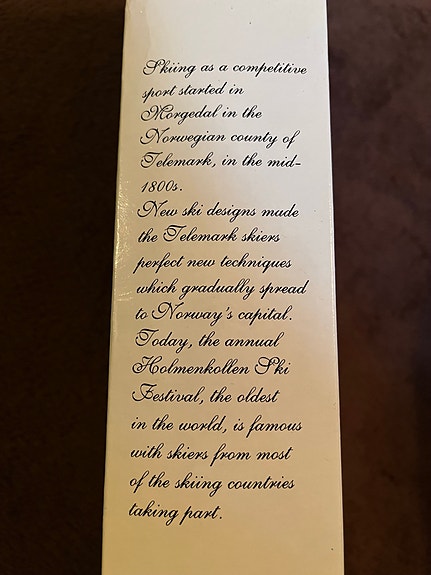 Skiing as a competitive
sport started in
Morgedal in the
Norwegian county of
Telemark, in the mid-
1800s.
New ski designs made
the Telemark skiers
perfect new techniques
which gradually spread
to Norway's capital.
Today, the annual
Holmenkollen Ski
Festival, the oldest
in the world, is famous
with skiers from most
of the skiing countries
taking part.